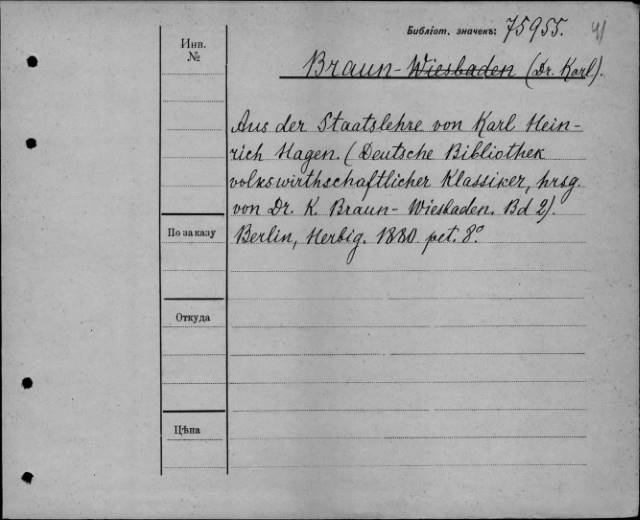 Библіот. значекъ: 75955. 41
Инв.
№
Braun-Wiesbaden (Dr. Karl).
Aus der Staatslehre von Karl Hein-
rich Hagen. (Deutsche Bibliothek
volkswirthschaftlicher Klassiker, hrsg.
von Dr. K. Braun-Wiesbaden. Bd 2).
По заказу
Berlin, Herbig. 1880. pet. 8º
Откуда
Цѣна